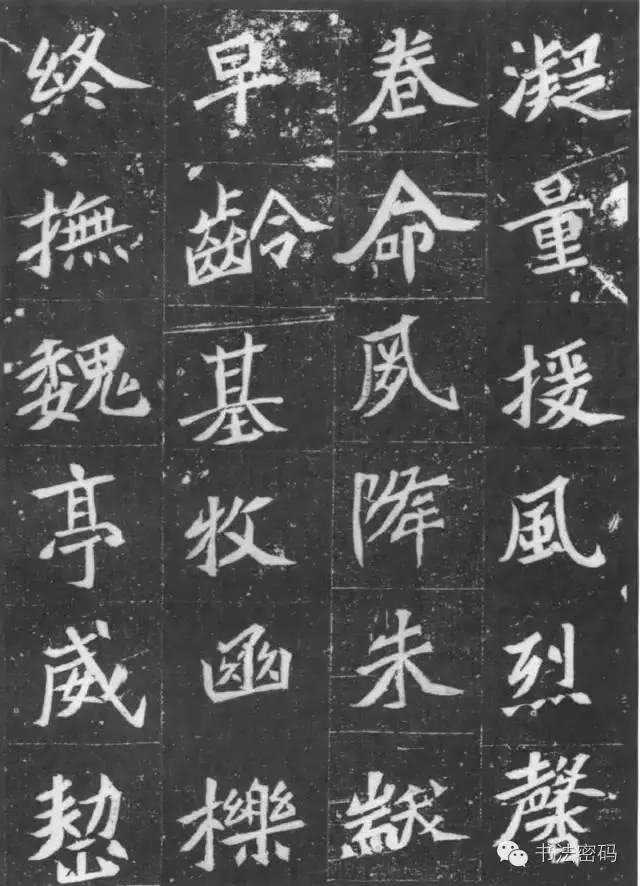 凝量援風烈馨
眷命夙降朱黻
早齡基牧函櫟
終撫魏亭威
书法密码